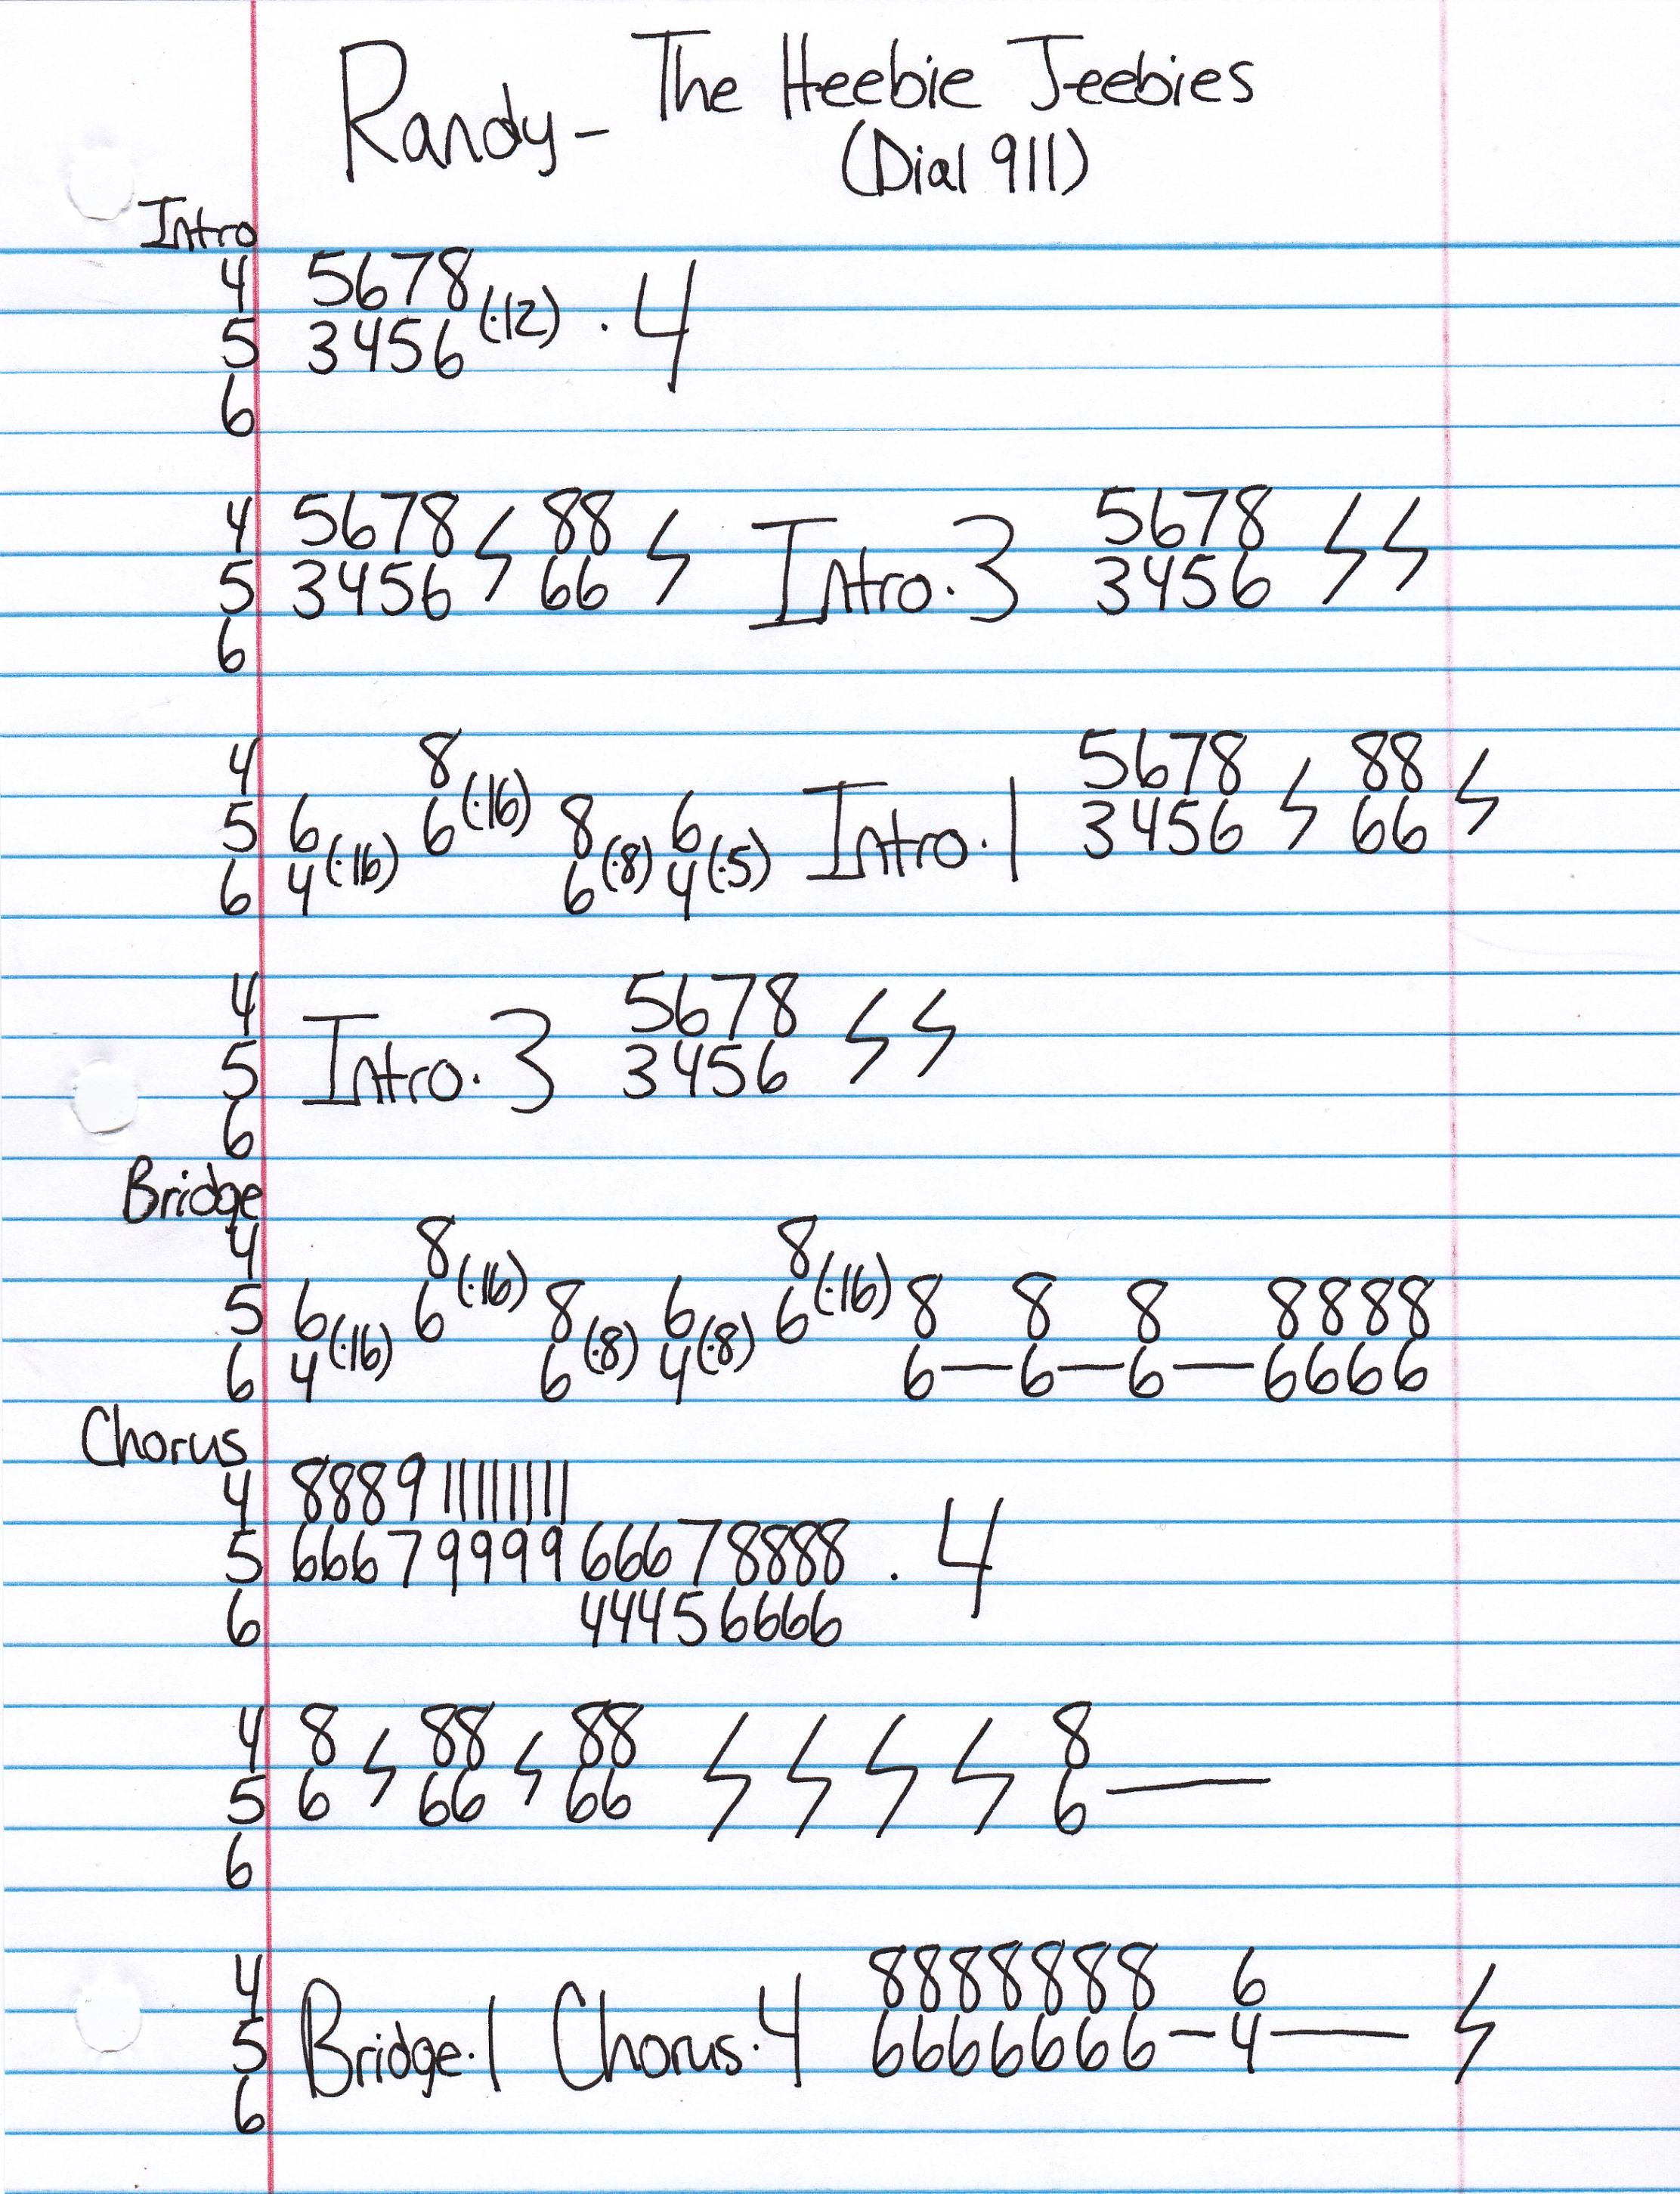 Randy - The Heebie Jeebies
(Dial 911)
Intro
4 5678
5 3456 (·12) · 4
6
4 5678 ϟ 88 ϟ Intro · 3 5678 ϟ ϟ
5 3456 66 3456
6
4 8 5678 ϟ 88 ϟ
5 6 6 (·16) 8 6 Intro · 1 3456 66
6 4 (·16) 6 (·8) 4 (·5)
4 5678 ϟ ϟ
5 Intro · 3 3456
6
Bridge
4 8 8
5 6 6 (·16) 8 6 6 (·16) 8 8 8 8888
6 4 (·16) 6 (·8) 4 (·8) 6—6—6—6666
Chorus
4 8889 11 11 11 11
5 66679999 66678888 · 4
6 44456666
4 8 ϟ 88 ϟ 88 ϟ ϟ ϟ ϟ 8
5 6 66 66 6—
6
4 8888888 6
5 Bridge · 1 Chorus · 4 6666666—4— ϟ
6